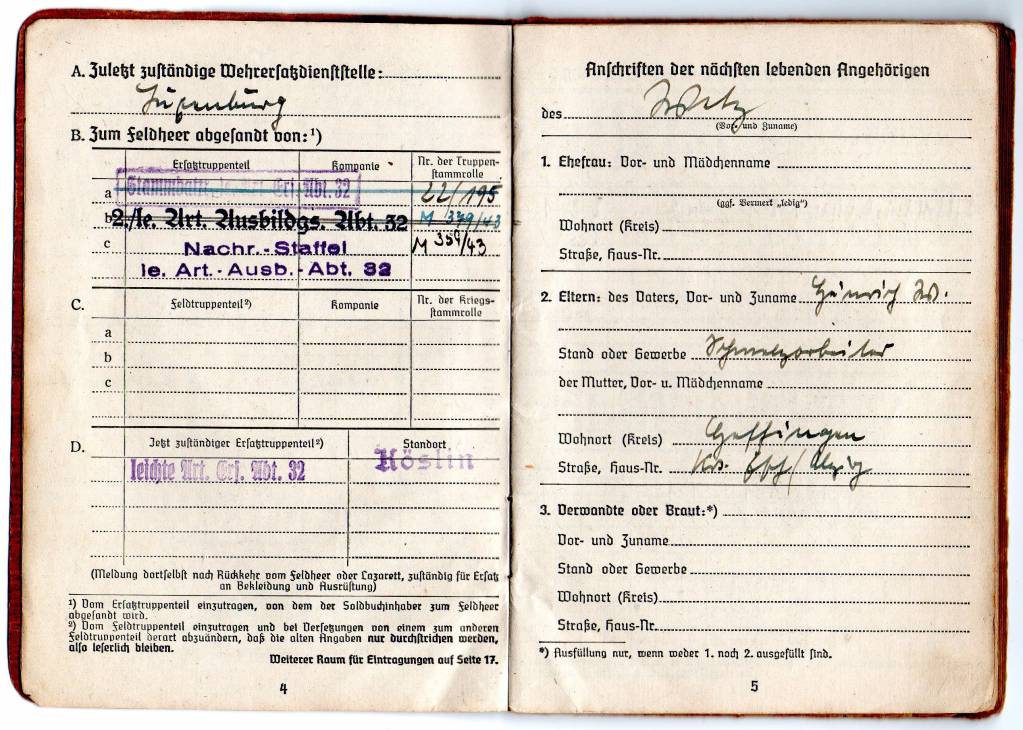 A. Zuletzt zuständige Wehrersatzdienststelle:
Luxenburg
B. Zum Feldheer abgesandt von:¹)
Ersatztruppenteil Kompanie Nr. der Truppen-
stammrolle
a Stammbatr. le. Art. Ers. Abt. 32 22/195
b 2./le. Art. Ausbildgs. Abt. 32 M 379/43
c Nachr.-Staffel M 359/43
le. Art.-Ausb.-Abt. 32
C. Feldtruppenteil²) Kompanie Nr. der Kriegs-
stammrolle
a
b
c
D. Jetzt zuständiger Ersatztruppenteil²) Standort
leichte Art. Ers. Abt. 32 Köslin
(Meldung dortselbst nach Rückkehr vom Feldheer oder Lazarett, zuständig für Ersatz
an Bekleidung und Ausrüstung)
¹) Vom Ersatztruppenteil einzutragen, von dem der Soldbuchinhaber zum Feldheer
abgesandt wird.
²) Vom Feldtruppenteil einzutragen und bei Versetzungen von einem zum anderen
Feldtruppenteil derart abzuändern, daß die alten Angaben nur durchstrichen werden,
also leserlich bleiben.
Weiterer Raum für Eintragungen auf Seite 17.
4
Anschriften der nächsten lebenden Angehörigen
des
(Vor- und Zuname)
1. Ehefrau: Vor- und Mädchenname
(ggf. Vermerk „ledig")
Wohnort (Kreis)
Straße, Haus-Nr.
2. Eltern: des Vaters, Vor- und Zuname Heinrich W.
Stand oder Gewerbe Schmelzarbeiter
der Mutter, Vor- u. Mädchenname
Wohnort (Kreis)
Straße, Haus-Nr. Krs. Esch/Alzig
3. Verwandte oder Braut:*)
Vor- und Zuname
Stand oder Gewerbe
Wohnort (Kreis)
Straße, Haus-Nr.
*) Ausfüllung nur, wenn weder 1. noch 2. ausgefüllt sind.
5